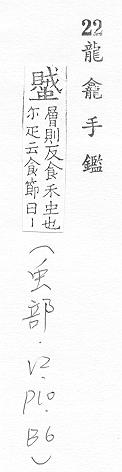 22 龍龕手鑑
蠈
層則反食禾虫也
尒疋云食節曰丨
(虫部.V2.P10.B6)